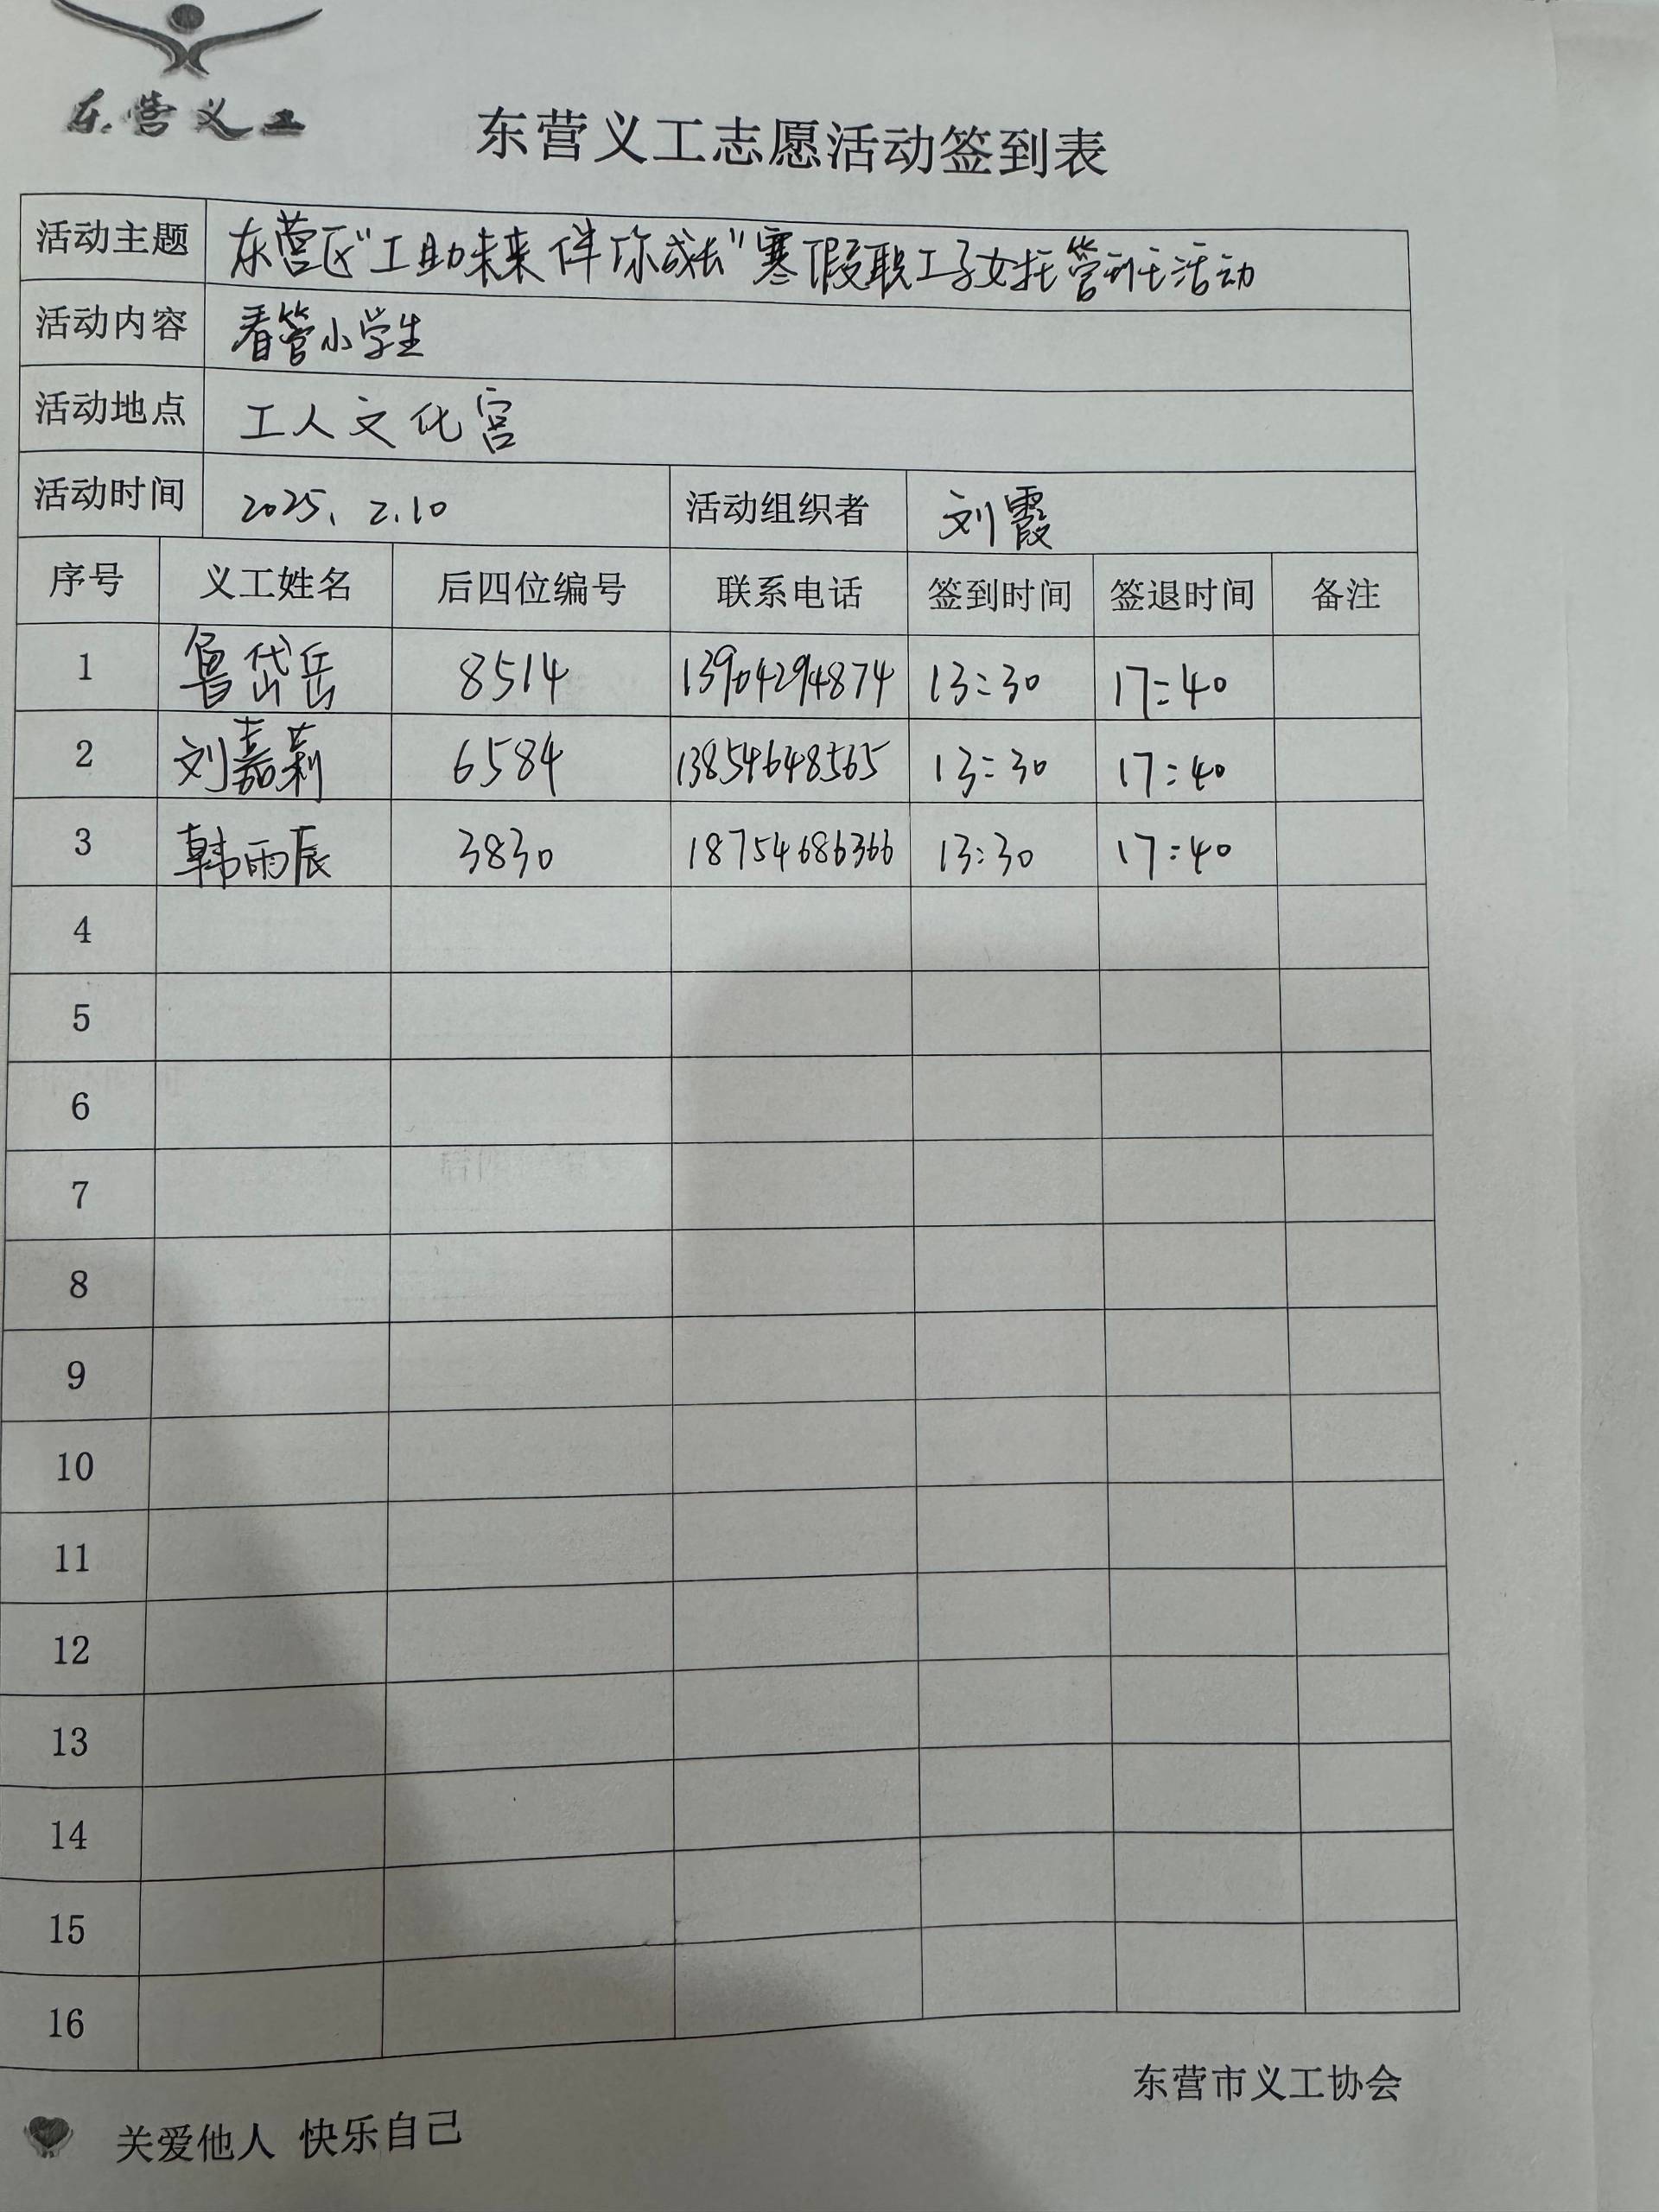 东营义工
东营义工志愿活动签到表
活动主题 东营区"工助未来 伴你成长"寒假职工子女托管班活动
活动内容 看管小学生
活动地点 工人文化宫
活动时间 2025、2.10 活动组织者 刘霞
序号 义工姓名 后四位编号 联系电话 签到时间 签退时间 备注
1 鲁岱岳 8514 13904294874 13:30 17:40
2 刘嘉莉 6584 13854648565 13:30 17:40
3 韩雨辰 3830 18754686366 13:30 17:40
4
5
6
7
8
9
10
11
12
13
14
15
16
东营市义工协会
关爱他人 快乐自己